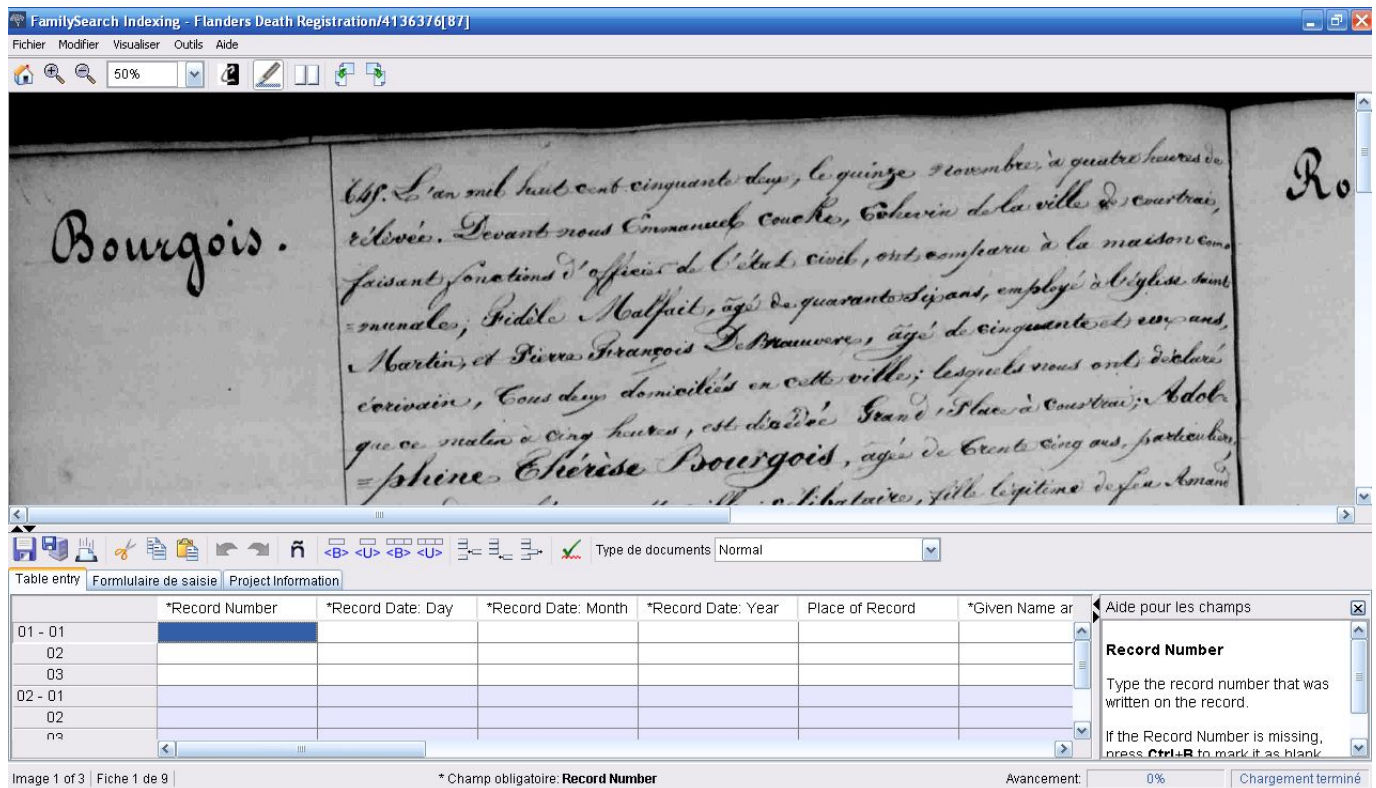 FamilySearch Indexing - Flanders Death Registration/4136376[87]
Fichier Modifier Visualiser Outils Aide
50%
Bourgois.
L'an mil huit cent cinquante deux, le quinze novembre, à quatre heures de
rélévée. Devant nous Emmanuel Coucke, Echevin de la ville de courtrai,
faisant fonctions d'officier de l'état civil, ont comparu à la maison com-
=munale; Fidèle Malfait, âgé de quarante six ans, employé à l'église saint
Martin, et Pierre François DeBrauwere, âgé de cinquante et un ans,
écrivain, Tous deux domiciliés en cette ville; lesquels nous ont déclaré
que ce matin à cinq heures, est décédée Grand'Place à Courtrai; Adol-
=phine Thérèse Bourgois, agée de Trente cinq ans, particulière,
célibataire, fille légitime de feu Amand
Ro
Type de documents Normal
Table entry Formlulaire de saisie Project Information
*Record Number *Record Date: Day *Record Date: Month *Record Date: Year Place of Record *Given Name ar
Aide pour les champs
01 - 01
02
03
02 - 01
02
03
Record Number
Type the record number that was
written on the record.
If the Record Number is missing,
press Ctrl+B to mark it as blank
Image 1 of 3 Fiche 1 de 9 * Champ obligatoire: Record Number Avancement: 0% Chargement terminé